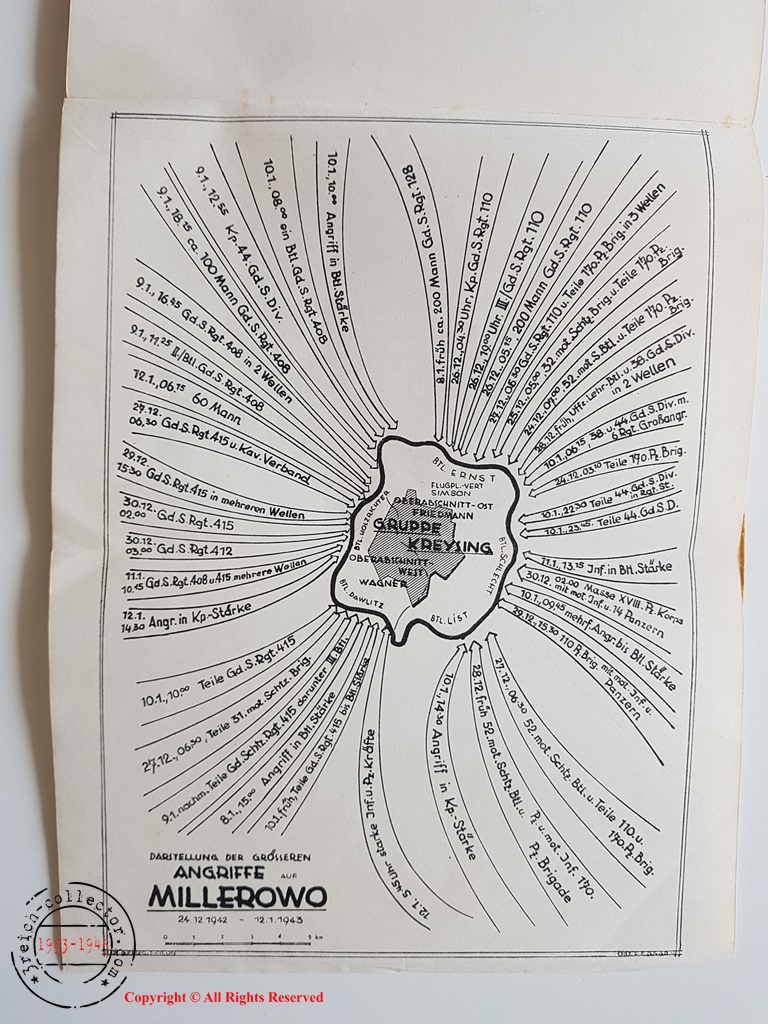 9.1., 18.15 ca. 100 Mann Gd.S.Rgt. 408
9.1., 12.55 Kp. 44. Gd. S. Div.
10.1., 08.00 ein Btl. Gd.S.Rgt. 408
10.1., 10.00 Angriff in Btl. Stärke
8.1. früh ca. 200 Mann Gd.S.Rgt. 128
26.12., 04.30 Uhr, Kp. Gd. S. Rgt. 110
26.12., 10.00 Uhr III./Gd. S. Rgt. 110
26.12., 05.15 200 Mann Gd. S. Rgt. 110
27.12., 06.30 Gd.S.Rgt. 110 u. Teile 170. Pz. Brig. in 3 Wellen
25.12., 05.00 32. mot. Schtz. Brig. u. Teile 170. Pz. Brig.
24.12., 09.00 52. mot. S. Btl. u. Teile 170. Pz. Brig.
28.12. früh, Uffz. Lehr-Btl. u. 38. Gd. S. Div. in 2 Wellen
10.1., 06.15 38 u. 44. Gd. S. Div. m. 6 Rgt. Großangr.
24.12. 03.10 Teile 170. Pz. Brig.
10.1., 22.30 Teile 44. Gd. S. Div. in Rgt. St.
10.1., 23.45. Teile 44. Gd. S. D.
11.1., 13.15 Inf. in Btl. Stärke
30.12. 02.00 Masse XVIII. Pz. Korps mit mot. Inf. u. 14 Panzern
10.1., 09.45 mehrf. Angr. bis Btl. Stärke
29.12., 15.30 110 Pz. Brig. mit mot. Inf. u. Panzern
9.1., 16.45 Gd. S. Rgt. 408 in 2 Wellen
9.1., 11.25 II./Btl. Gd. S. Rgt. 408
12.1., 06.15 60 Mann
27.12. 06.30 Gd.S.Rgt. 415 u. Kav. Verband
29.12. 15.30 Gd.S.Rgt. 415 in mehreren Wellen
30.12. 02.00 Gd. S. Rgt. 415
30.12. 03.00 Gd. S. Rgt. 412
11.1. 10.15 Gd.S.Rgt. 408 u. 415 mehrere Wellen
12.1. 14.30 Angr. in Kp.-Stärke
BTL. ERNST
FLUGPL.-VERT
SIMSON
OBERABSCHNITT-OST
FRIEDMANN
GRUPPE
KREYSING
OBERABSCHNITT-
WEST
WAGNER
BTL. HOLZRICHTER
BTL. PAWLITZ
BTL. LIST
BTL. SCHLECHT
10.1., 10.00 Teile Gd. S. Rgt. 415
27.12., 06.30, Teile 31. mot. Schtz. Brig.
9.1. nachm. Teile Gd. Schtz. Rgt. 415 darunter III. Btl.
8.1., 15.00 Angriff in Btl. Stärke
10.1. früh, Teile Gd. S. Rgt. 415 bis Btl. Stärke
12.1. 5.45 Uhr starke Inf. u. Pz. Kräfte
10.1., 14.30 Angriff in Kp.-Stärke
28.12. früh 52. mot. Schtz. Btl. u. Pz. u. mot. Inf. 170. Pz. Brigade
27.12., 06.30 52. mot. Schtz. Btl. u. Teile 110. u. 170. Pz. Brig.
DARSTELLUNG DER GRÖSSEREN
ANGRIFFE AUF
MILLEROWO
24.12.1942 - 12.1.1943
0 1 2 3 4 5 km
3reich-collector.com
1933-1945
Copyright © All Rights Reserved